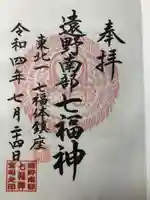 奉拝
遠野南部七福神
東北一 七福体鎮座
令和四年七月二十四日